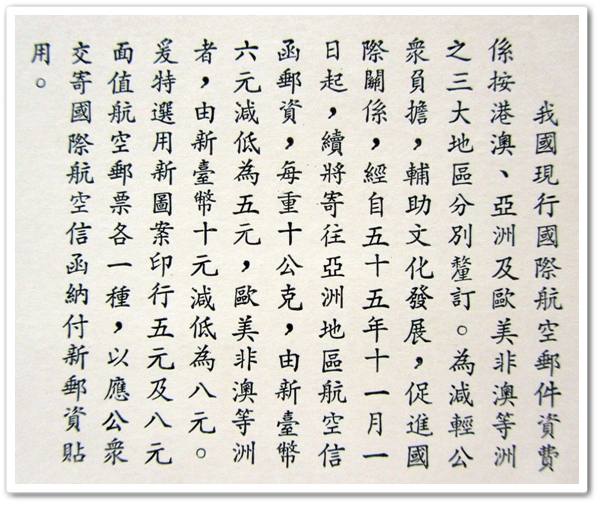 我國現行國際航空郵件資費
係按港澳、亞洲及歐美非澳等洲
之三大地區分別釐訂。為減輕公
衆負擔，輔助文化發展，促進國
際關係，經自五十五年十一月一
日起，續將寄往亞洲地區航空信
函郵資，每重十公克，由新臺幣
六元減低為五元，歐美非澳等洲
者，由新臺幣十元減低為八元。
爰特選用新圖案印行五元及八元
面值航空郵票各一種，以應公衆
交寄國際航空信函納付新郵資貼
用。